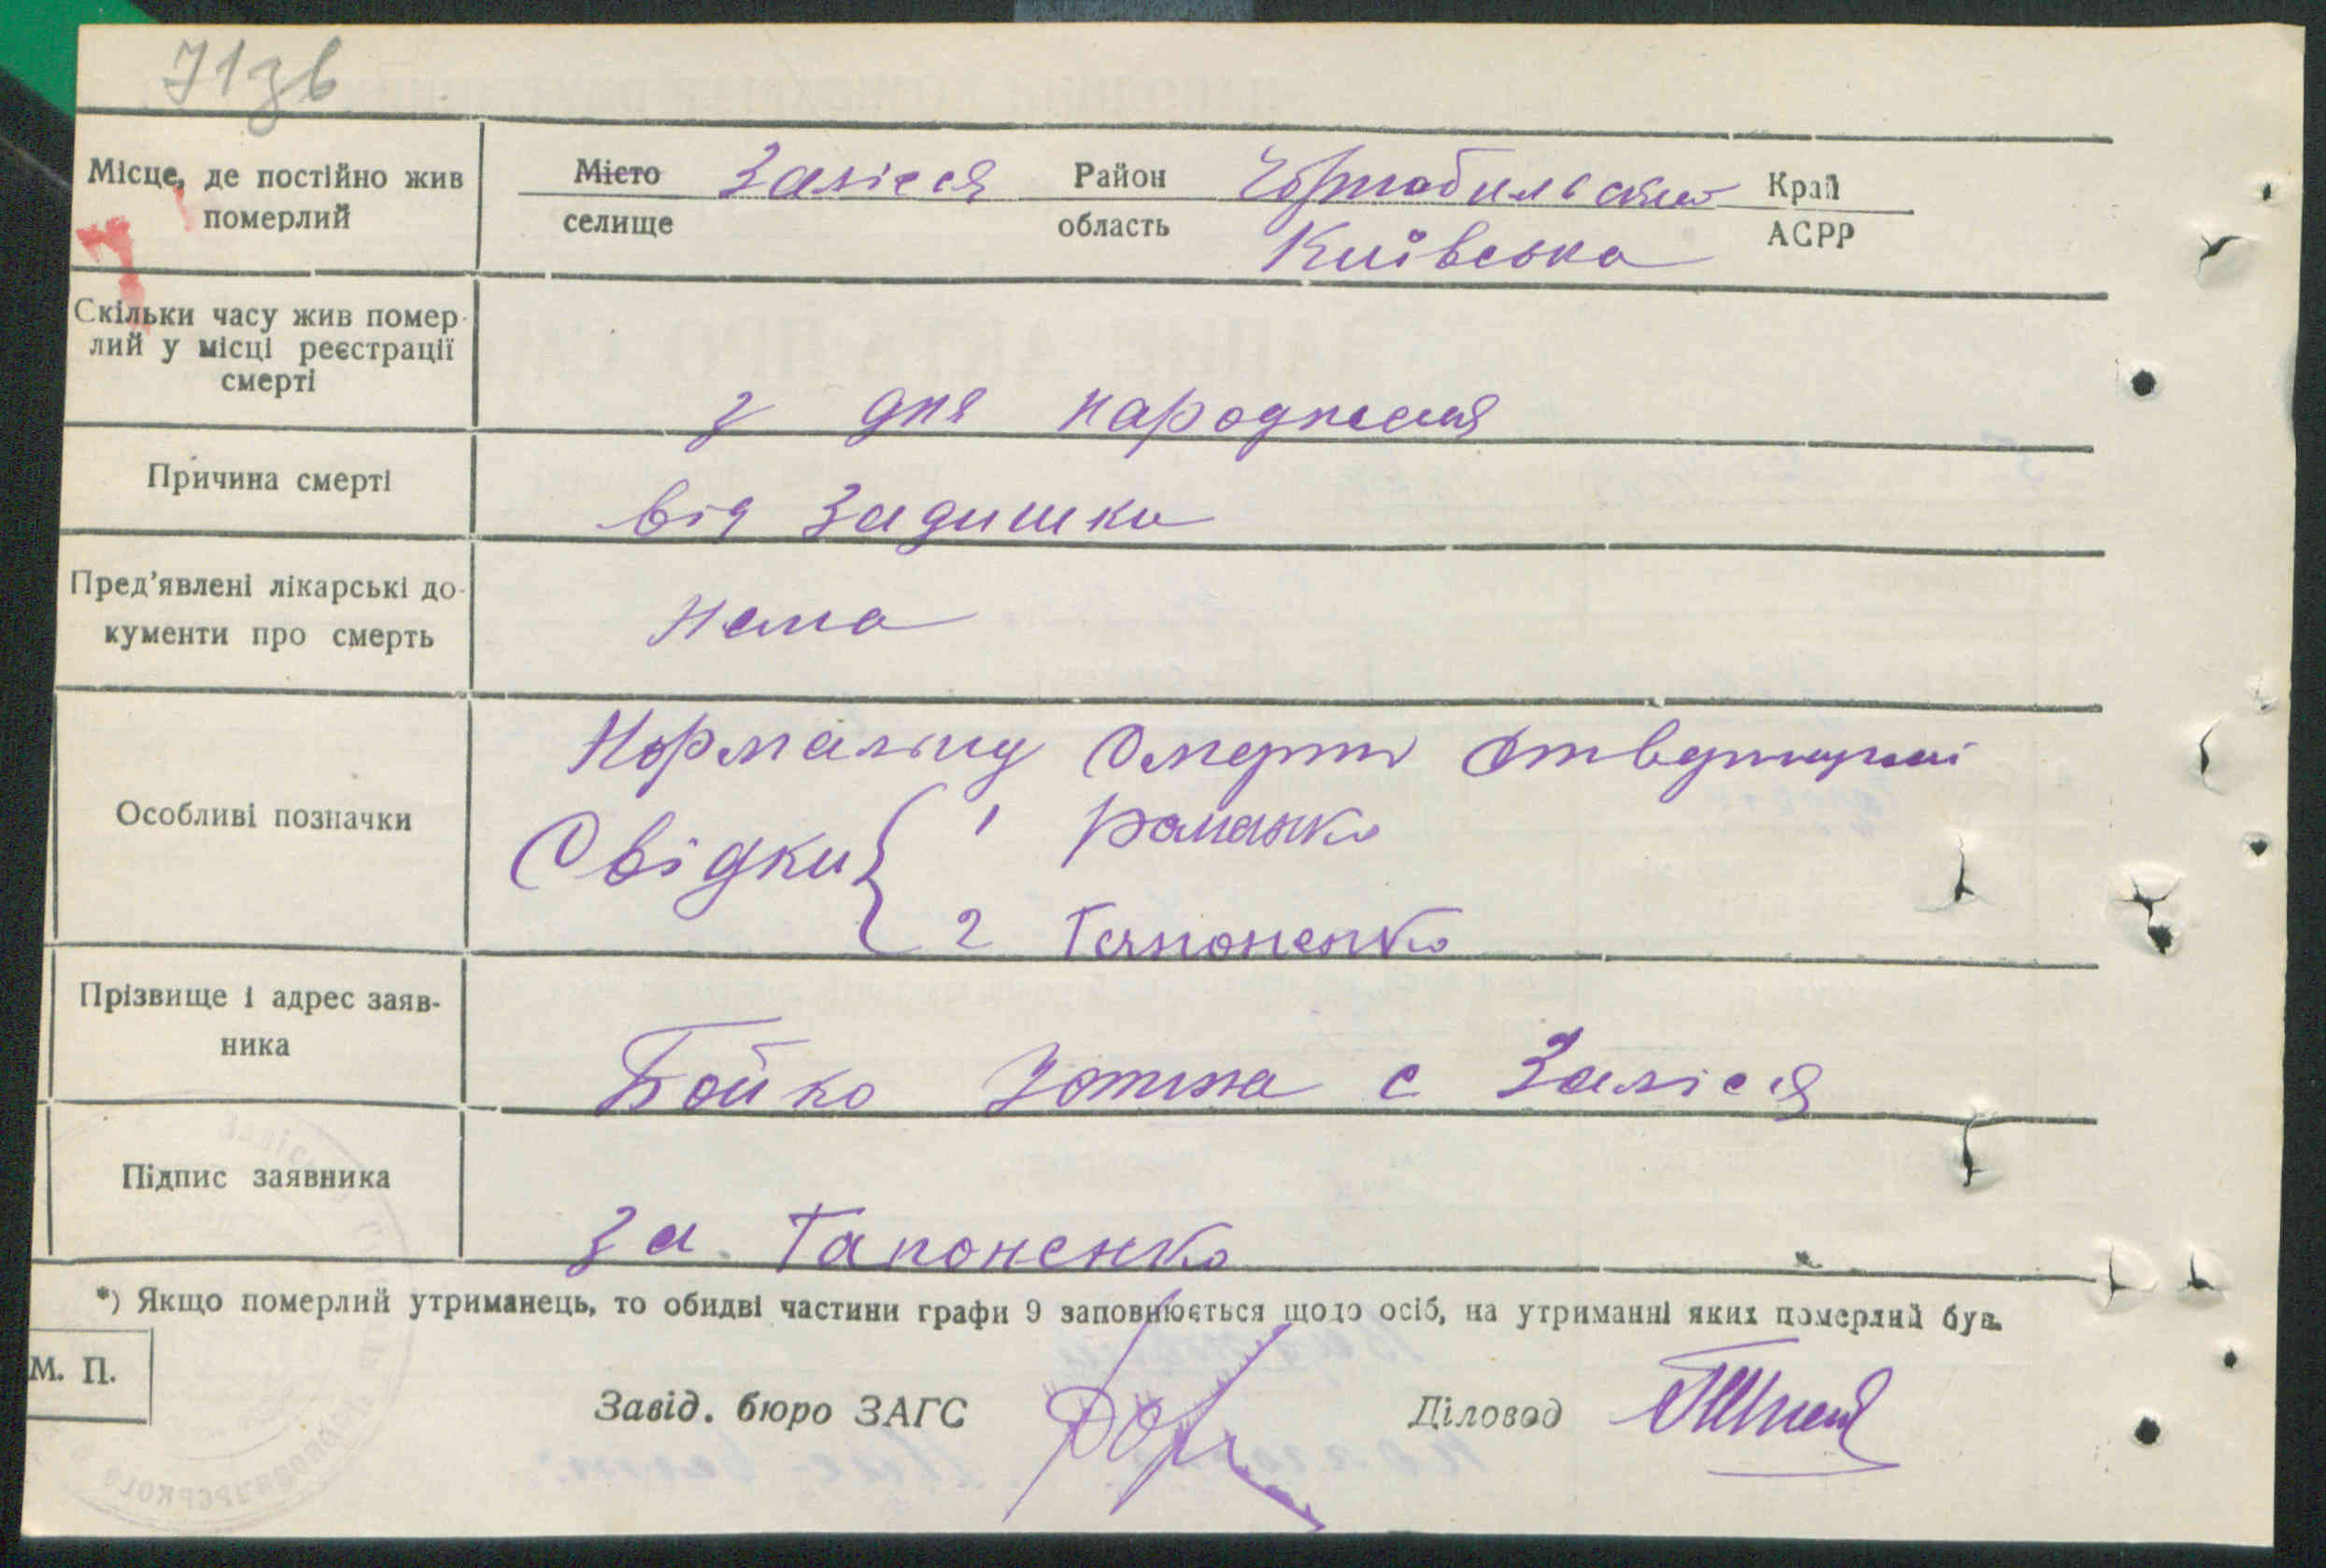 71зв
Місце, де постійно жив
померлий
Місто Залісся Район Чорнобильський Край
селище область Київська АСРР
Скільки часу жив помер-
лий у місці реєстрації
смерті
з дня народження
Причина смерті
від задишки
Пред'явлені лікарські до-
кументи про смерть
Нема
Особливі позначки
Нормальну смерть
Свідки { 1 Романко
2 Гапоненко
Прізвище і адрес заяв-
ника
Бойко с Залісся
Підпис заявника
за Гапоненко
*) Якщо померлий утриманець, то обидві частини графи 9 заповнюється щодо осіб, на утриманні яких померлий був.
М. П.
Завід. бюро ЗАГС Діловод